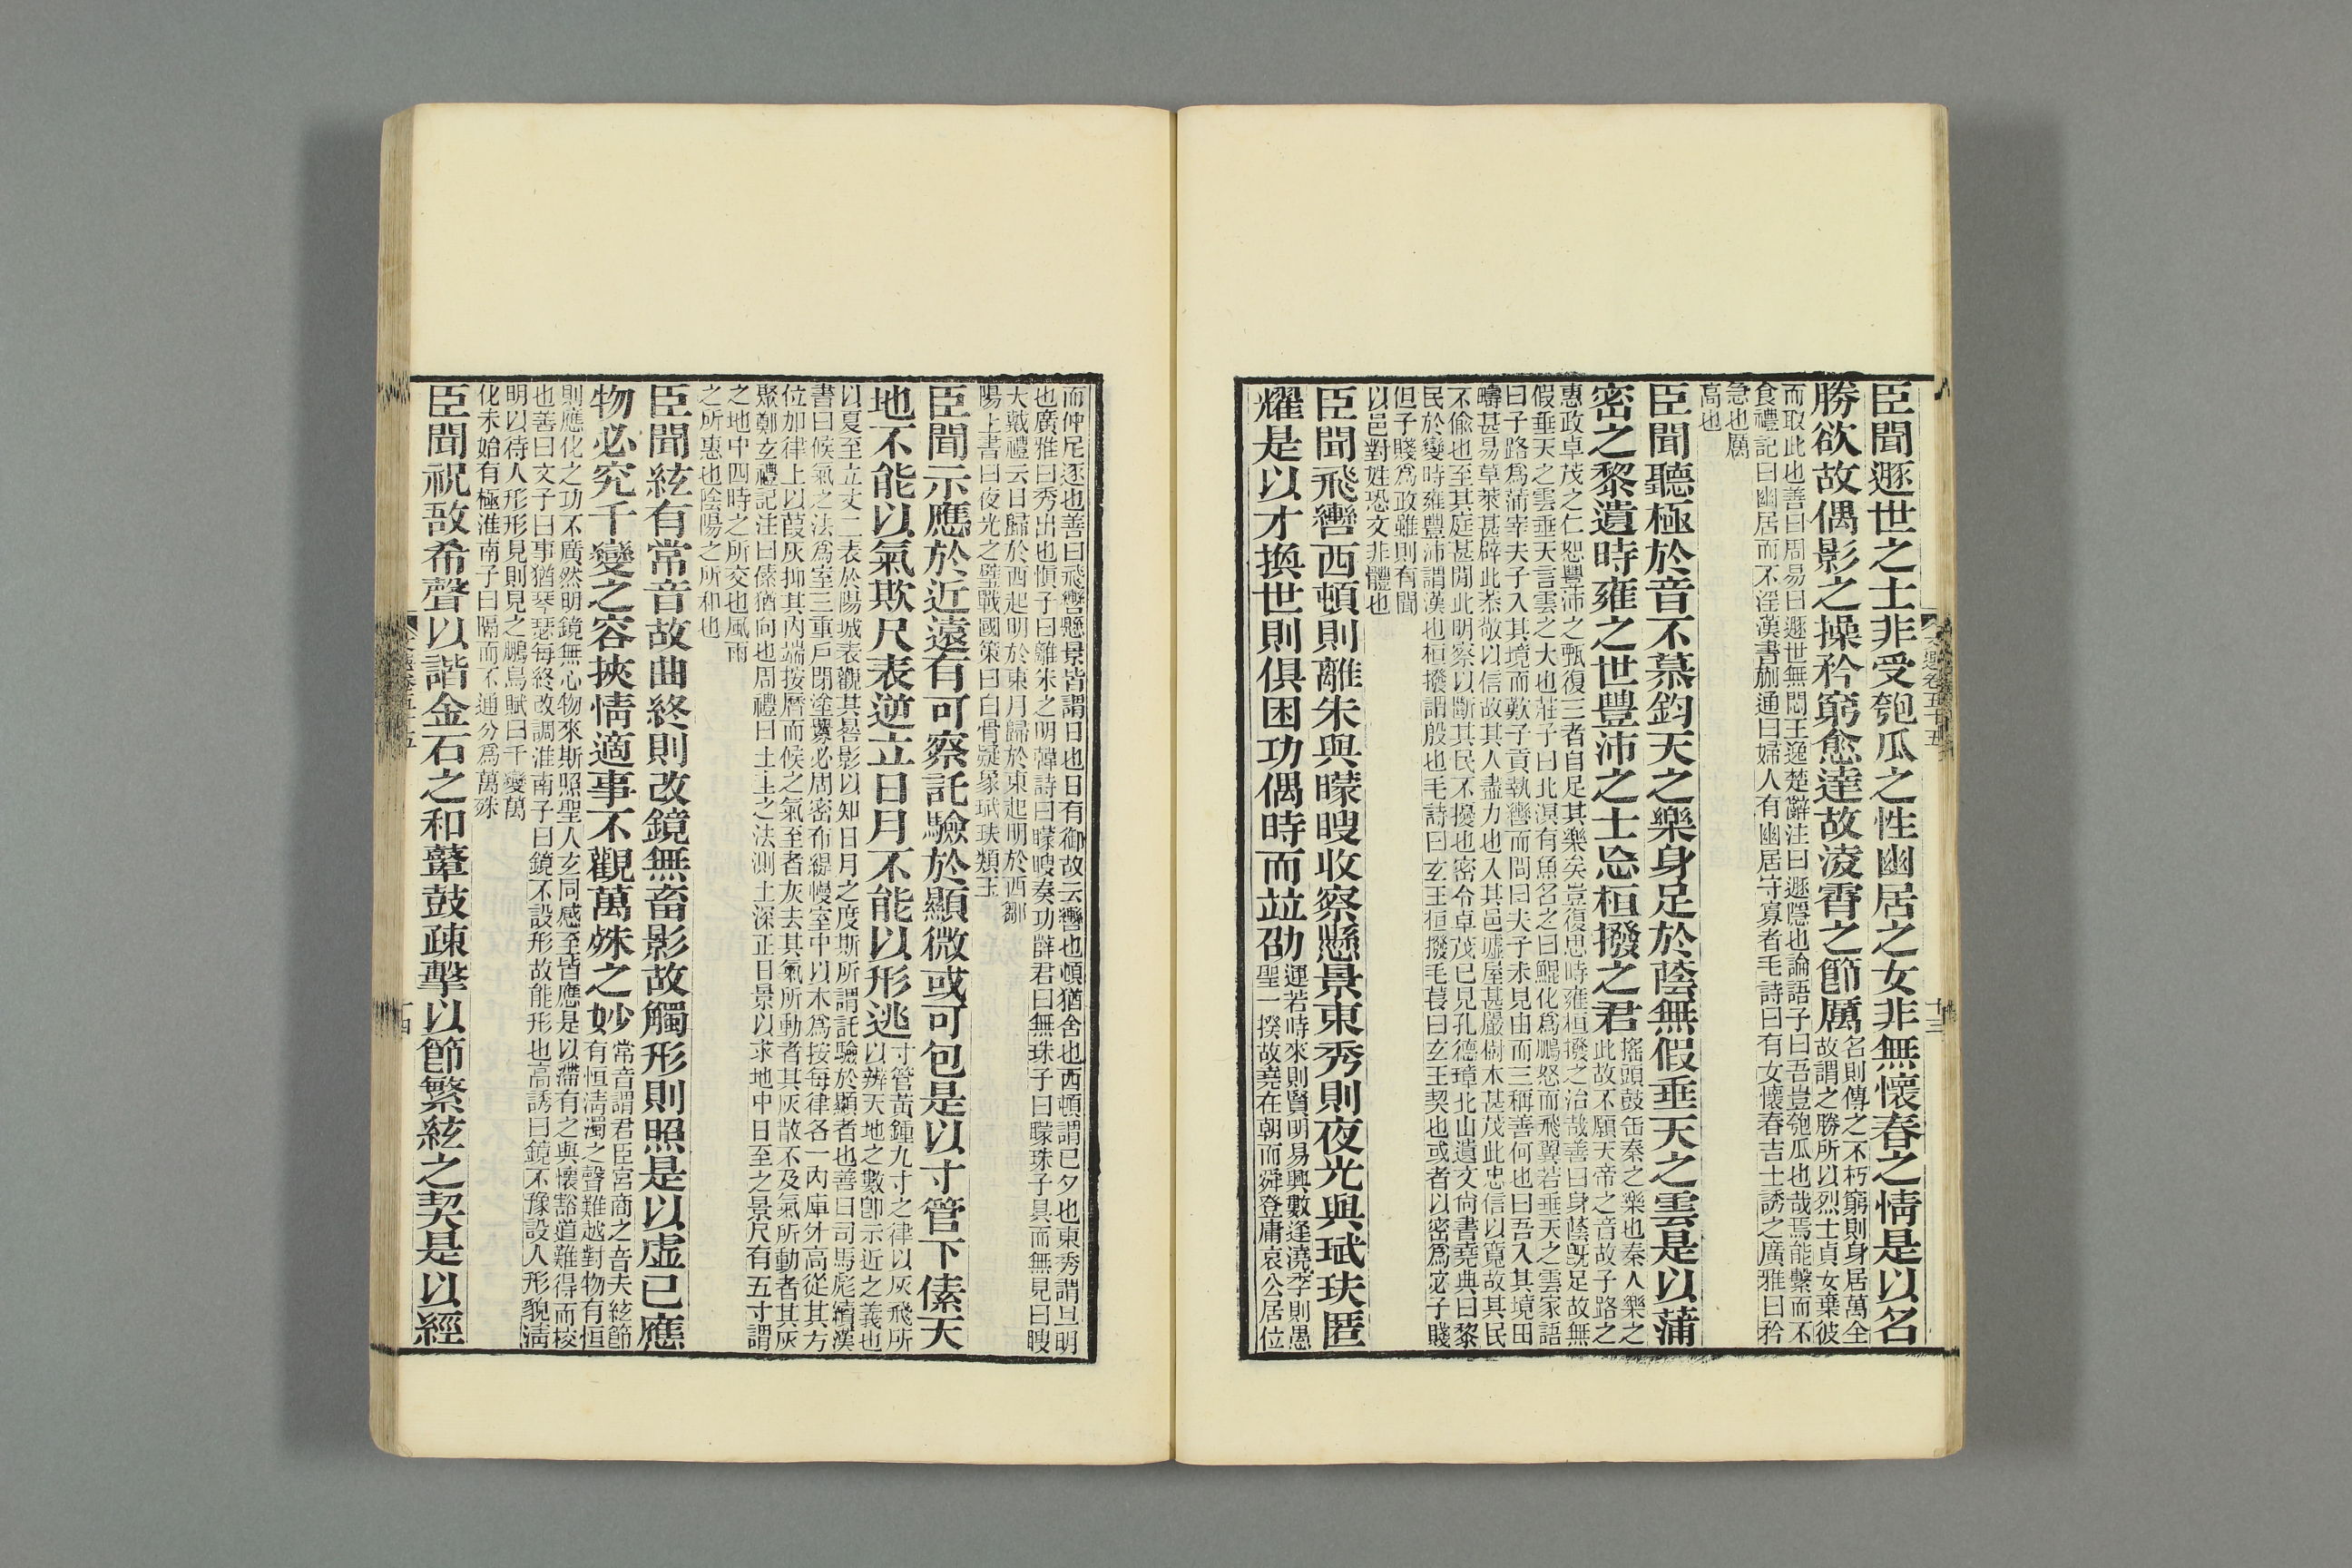 臣聞遯世之士非受匏瓜之性幽居之女非無懷春之情是以名
勝欲故偶影之操矜窮愈達故凌霄之節厲
名則傳之不朽窮則身居萬全
故謂之勝所以烈士貞女棄彼
而取此也善曰周易曰遯世無悶王逸楚辭注曰遯隱也論語子曰吾豈匏瓜也哉焉能繫而不
食禮記曰幽居而不淫漢書蒯通曰婦人有幽居守寡者毛詩曰有女懷春吉士誘之廣雅曰矜
急也厲
高也
臣聞聽極於音不慕鈞天之樂身足於蔭無假垂天之雲是以蒲
密之黎遺時雍之世豐沛之士忘桓撥之君
搖頭鼓缶秦之樂也秦人樂之
此故不願天帝之音故子路之
惠政卓茂之仁恕豐沛之甄復三者自足其樂矣豈復思時雍桓撥之治哉善曰身蔭旣足故無
假垂天之雲垂天言雲之大也莊子曰北溟有魚名之曰鯤化爲鵬怒而飛翼若垂天之雲家語
曰子路爲蒲宰夫子入其境而歎子貢執轡而問曰夫子未見由而三稱善何也曰吾入其境田
疇甚易草萊甚辟此恭敬以信故其人盡力也入其邑墟屋甚嚴樹木甚茂此忠信以寬故其民
不偷也至其庭甚閒此明察以斷其民不擾也密令卓茂已見孔德璋北山遺文尙書堯典曰黎
民於變時雍豐沛謂漢也桓撥謂殷也毛詩曰玄王桓撥毛萇曰玄王契也或者以密爲宓子賤
但子賤爲政雖則有聞
以邑對姓恐文非體也
臣聞飛轡西頓則離朱與矇瞍收察懸景東秀則夜光與珷玞匿
耀是以才換世則俱困功偶時而竝劭
運若時來則賢明易興數逢澆季則愚
聖一揆故堯在朝而舜登庸哀公居位
而仲尼逐也善曰飛轡懸景皆謂日也日有御故云轡也頓猶舍也西頓謂已夕也東秀謂旦明
也廣雅曰秀出也愼子曰離朱之明韓詩曰矇瞍奏功薛君曰無珠子曰矇珠子具而無見曰瞍
大戴禮云日歸於西起明於東月歸於東起明於西鄒
陽上書曰夜光之璧戰國策曰白骨疑象珷玞類玉
臣聞示應於近遠有可察託驗於顯微或可包是以寸管下傃天
地不能以氣欺尺表逆立日月不能以形逃
寸管黃鍾九寸之律以灰飛所
以辨天地之數卽示近之義也
以夏至立丈二表於陽城表觀其晷影以知日月之度斯所謂託驗於顯者也善曰司馬彪續漢
書曰候氣之法爲室三重戶閉塗釁必周密布緹幔室中以木爲按每律各一內庫外高從其方
位加律上以葭灰抑其內端按曆而候之氣至者灰去其氣所動者其灰散不及氣所動者其灰
聚鄭玄禮記注曰傃猶向也周禮曰土圭之法測土深正日景以求地中日至之景尺有五寸謂
之地中四時之所交也風雨
之所惠也陰陽之所和也
臣聞絃有常音故曲終則改鏡無畜影故觸形則照是以虛已應
物必究千變之容挾情適事不觀萬殊之妙
常音謂君臣宮商之音夫絃節
有恒淸濁之聲難越對物有恒
則應化之功不廣然明鏡無心物來斯照聖人玄同感至皆應是以滯有之與懷豁道難得而梭
也善曰文子曰事猶琴瑟每終改調淮南子曰鏡不設形故能形也高誘曰鏡不豫設人形貌淸
明以待人形形見則見之鵬鳥賦曰千變萬
化未始有極淮南子曰隔而不通分爲萬殊
臣聞祝敔希聲以諧金石之和鼙鼓疎擊以節繁絃之契是以經